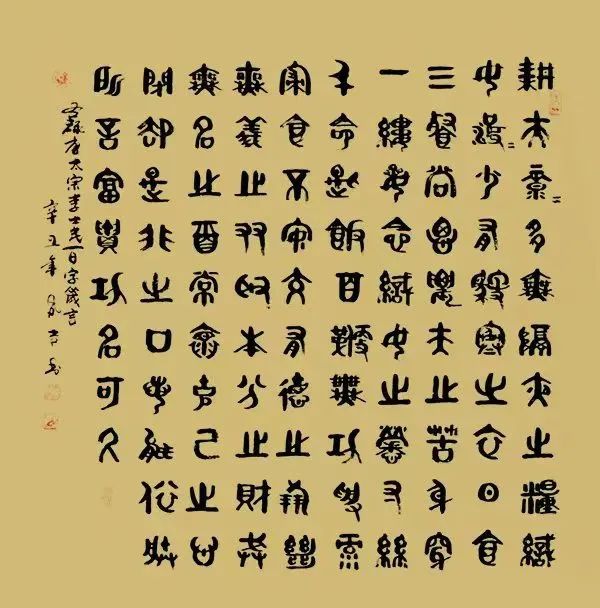 耕夫彔〻多無隔夜之糧織
女波〻少有禦寒之衣日食
三餐尚思農夫之苦身穿
一縷每念織女之勞寸絲
千命匙飯百鞭無功受祿
寢食不安交有德之朋絕
無義之友取本分之財戒
無名之酒常懷克己之心
閉却是非之口每能依朕
所言富貴功名可久
錄唐太宗李世民百字箴言
辛丑年